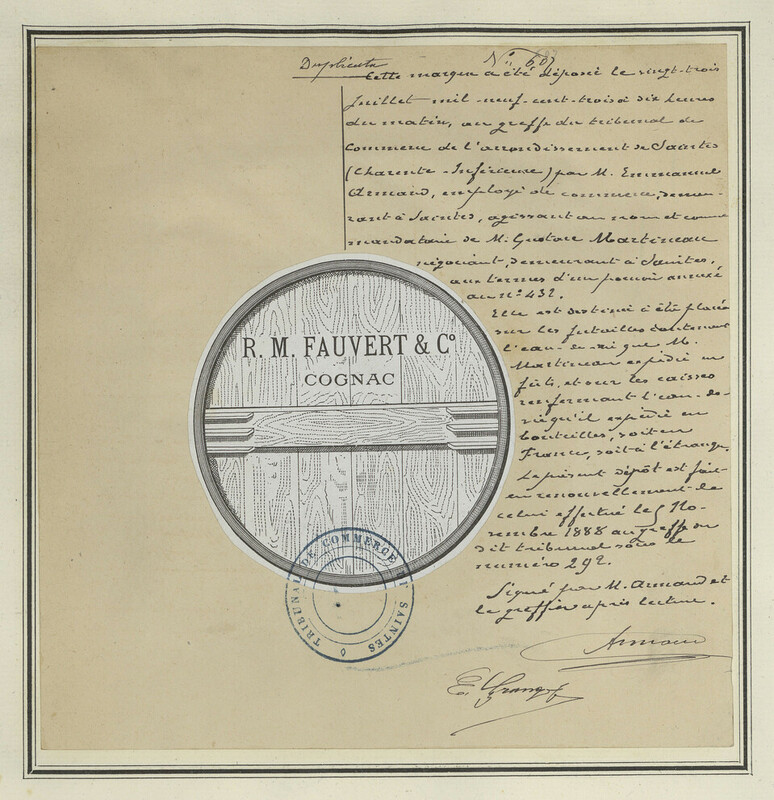 Duplicata
N° 607
Cette marque a été déposé le vingt-trois
Juillet mil-neuf-cent-trois à dix heures
du matin, au greffe du tribunal de
Commerce de l'arrondissement de Saintes
(Charente-Inférieure) par M. Emmanuel
Armand, employé de commerce, demeu-
rant à Saintes, agissant au nom et comme
mandataire de M. Gustave Martineau
négociant, demeurant à Saintes,
aux termes d'un pouvoir annexé
au N° 432.
Elle est destiné à été placée
sur les futailles contenant
l'eau-de-vie que M.
Martineau expédie en
fûts, et sur les caisses
renfermant l'eau-de-
vie qu'il expédie en
bouteilles, soit en
France, soit à l'étranger.
Le présent dépôt est fait
en renouvellement de
celui effectué le 5 No-
vembre 1888 au greffe du
dit tribunal sous le
numéro 292.
Signé par M. Armand et
le greffier après lecture.
Armand
R. M. FAUVERT & Cº
COGNAC
TRIBUNAL DE COMMERCE DE SAINTES